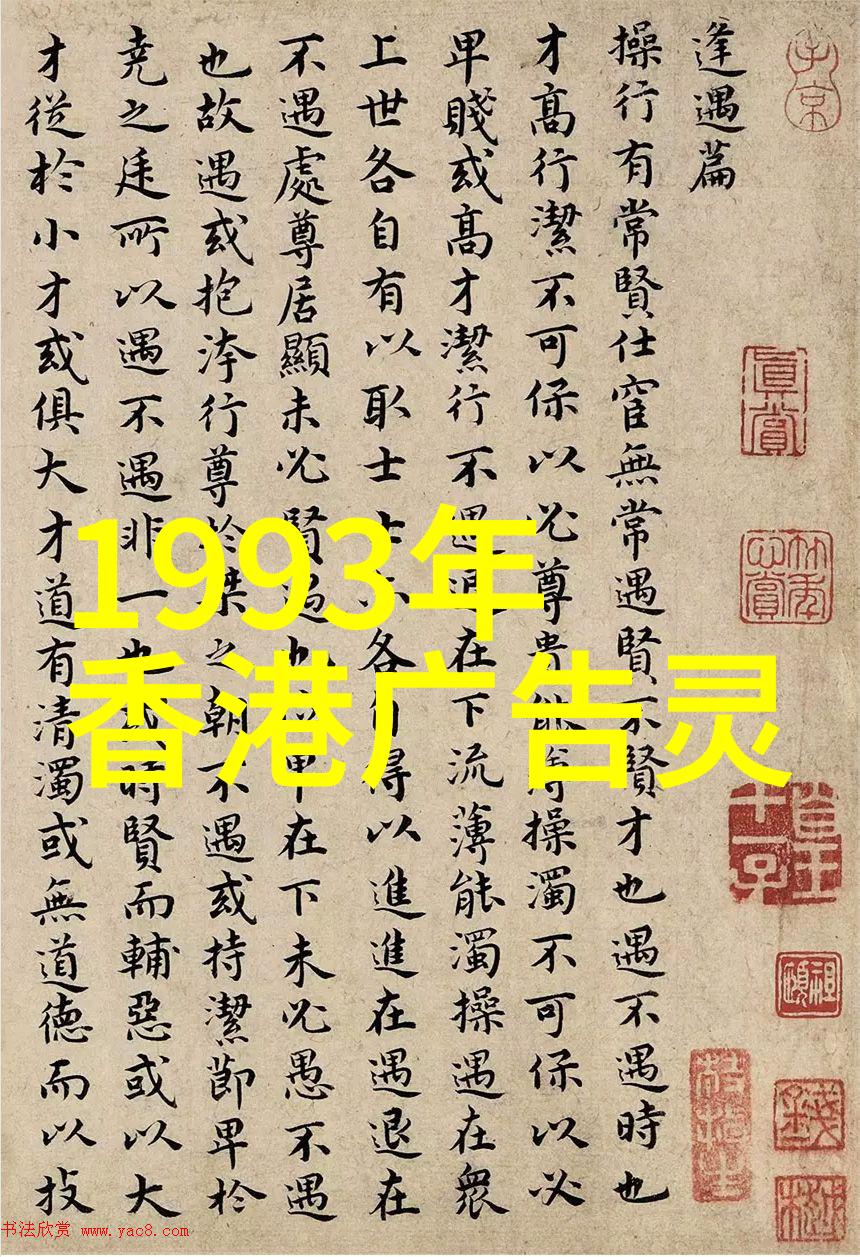 逢遇篇
操行有常賢仕宦無常遇賢不賢才也遇不遇時也
才高行潔不可保以必尊貴能薄操濁不可保以必
卑賤或高才潔行不遇退在下流薄能濁操遇在衆
上世各自有以取士士亦各自得以進進在遇退在
不遇處尊居顯未必賢遇也位卑在下未必愚不遇
也故遇或抱洿行尊於桀之朝不遇或持潔節卑於
堯之廷所以遇不遇非一也或時賢而輔惡或以大
才從於小才或俱大才道有清濁或無道德而以技
1993年
香港广告灵
真賞
书法欣赏 www.yac8.com